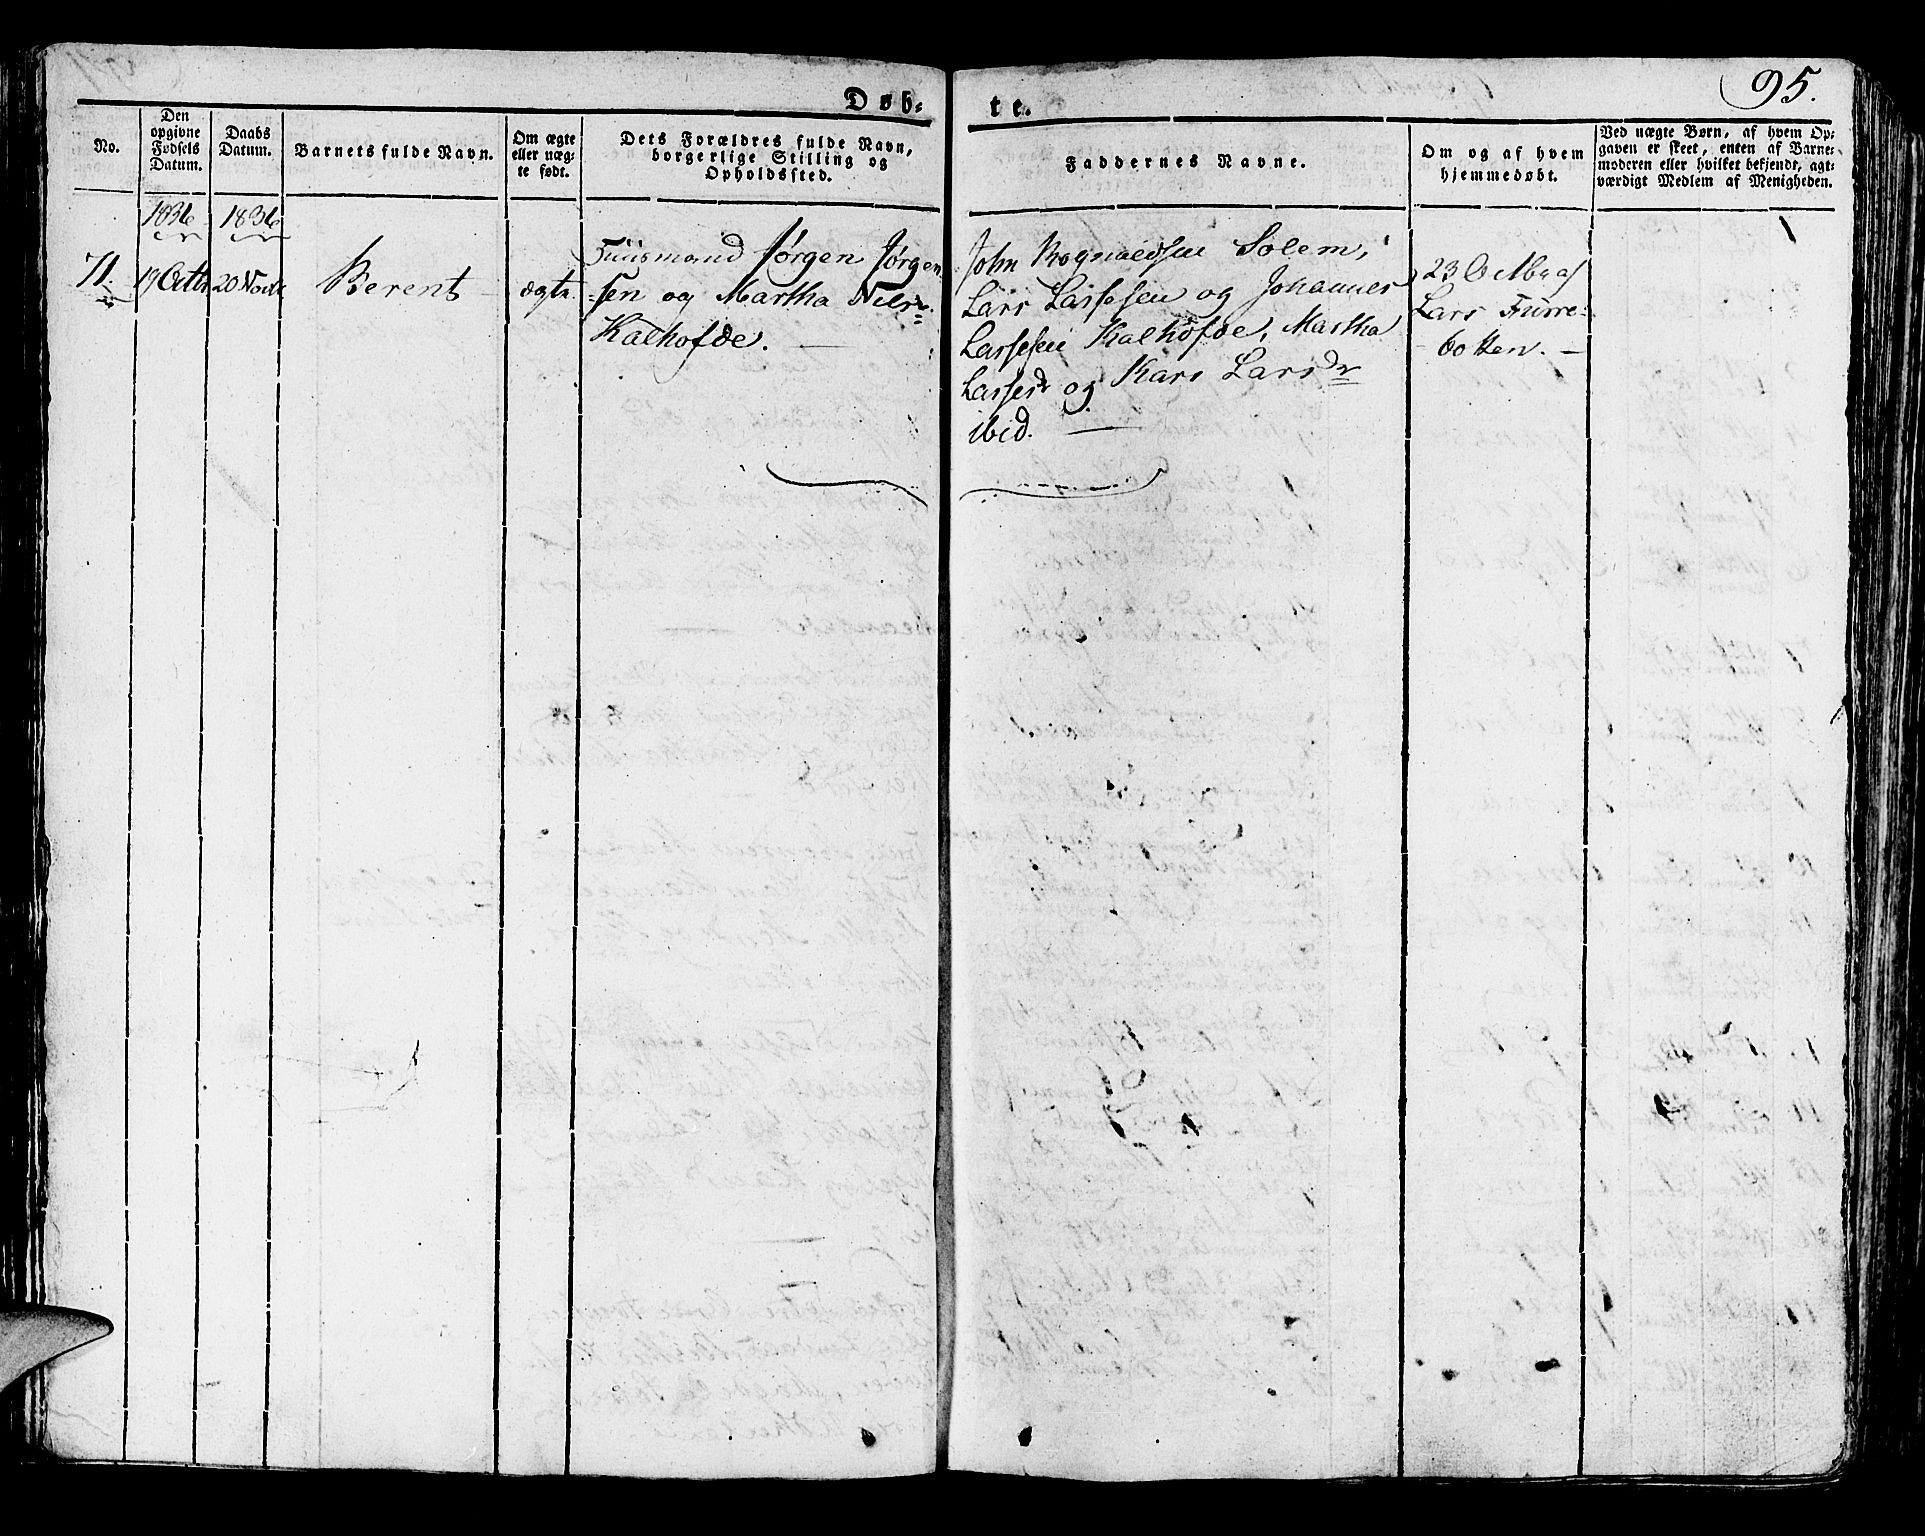 95.
Døb-
te.
No.
Den opgivne Fødsels Datum.
Daabs Datum.
Barnets fulde Navn.
Om ægte eller uægte født.
Dets Forældres fulde Navn, borgerlige Stilling og Opholdssted.
Faddernes Navne.
Om og af hvem hjemmedøbt.
Ved uægte Børn, af hvem Opgaven er skeet, enten af Barnemoderen eller hvilket bekjendt, agtværdigt Medlem af Menigheden.
1836
1836
71.
19 Octbr
20 Novbr
Berent
ægte
Huusmand Jørgen Jørgen-
sen og Martha Nilsdr
Kalhofde.
John Rognaldsen Solem,
Lars Lassesen og Johannes
Lassesen Kalhofde, Martha
Lassesdr og Kari Larsdr
ibid.
23 Octbr af
Lars Furre-
botten.